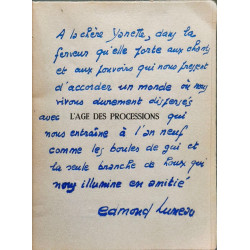 A la chère Yanette, dans la
ferveur qu'elle porte aux chants
et aux pouvoirs qui nous pressent
d'accorder un monde où nous
vivons durement dispersés
avec L'AGE DES PROCESSIONS qui
nous entraîne à l'an neuf
comme les boules de gui et
la seule branche de houx qui
nous illumine en amitié
Edmond